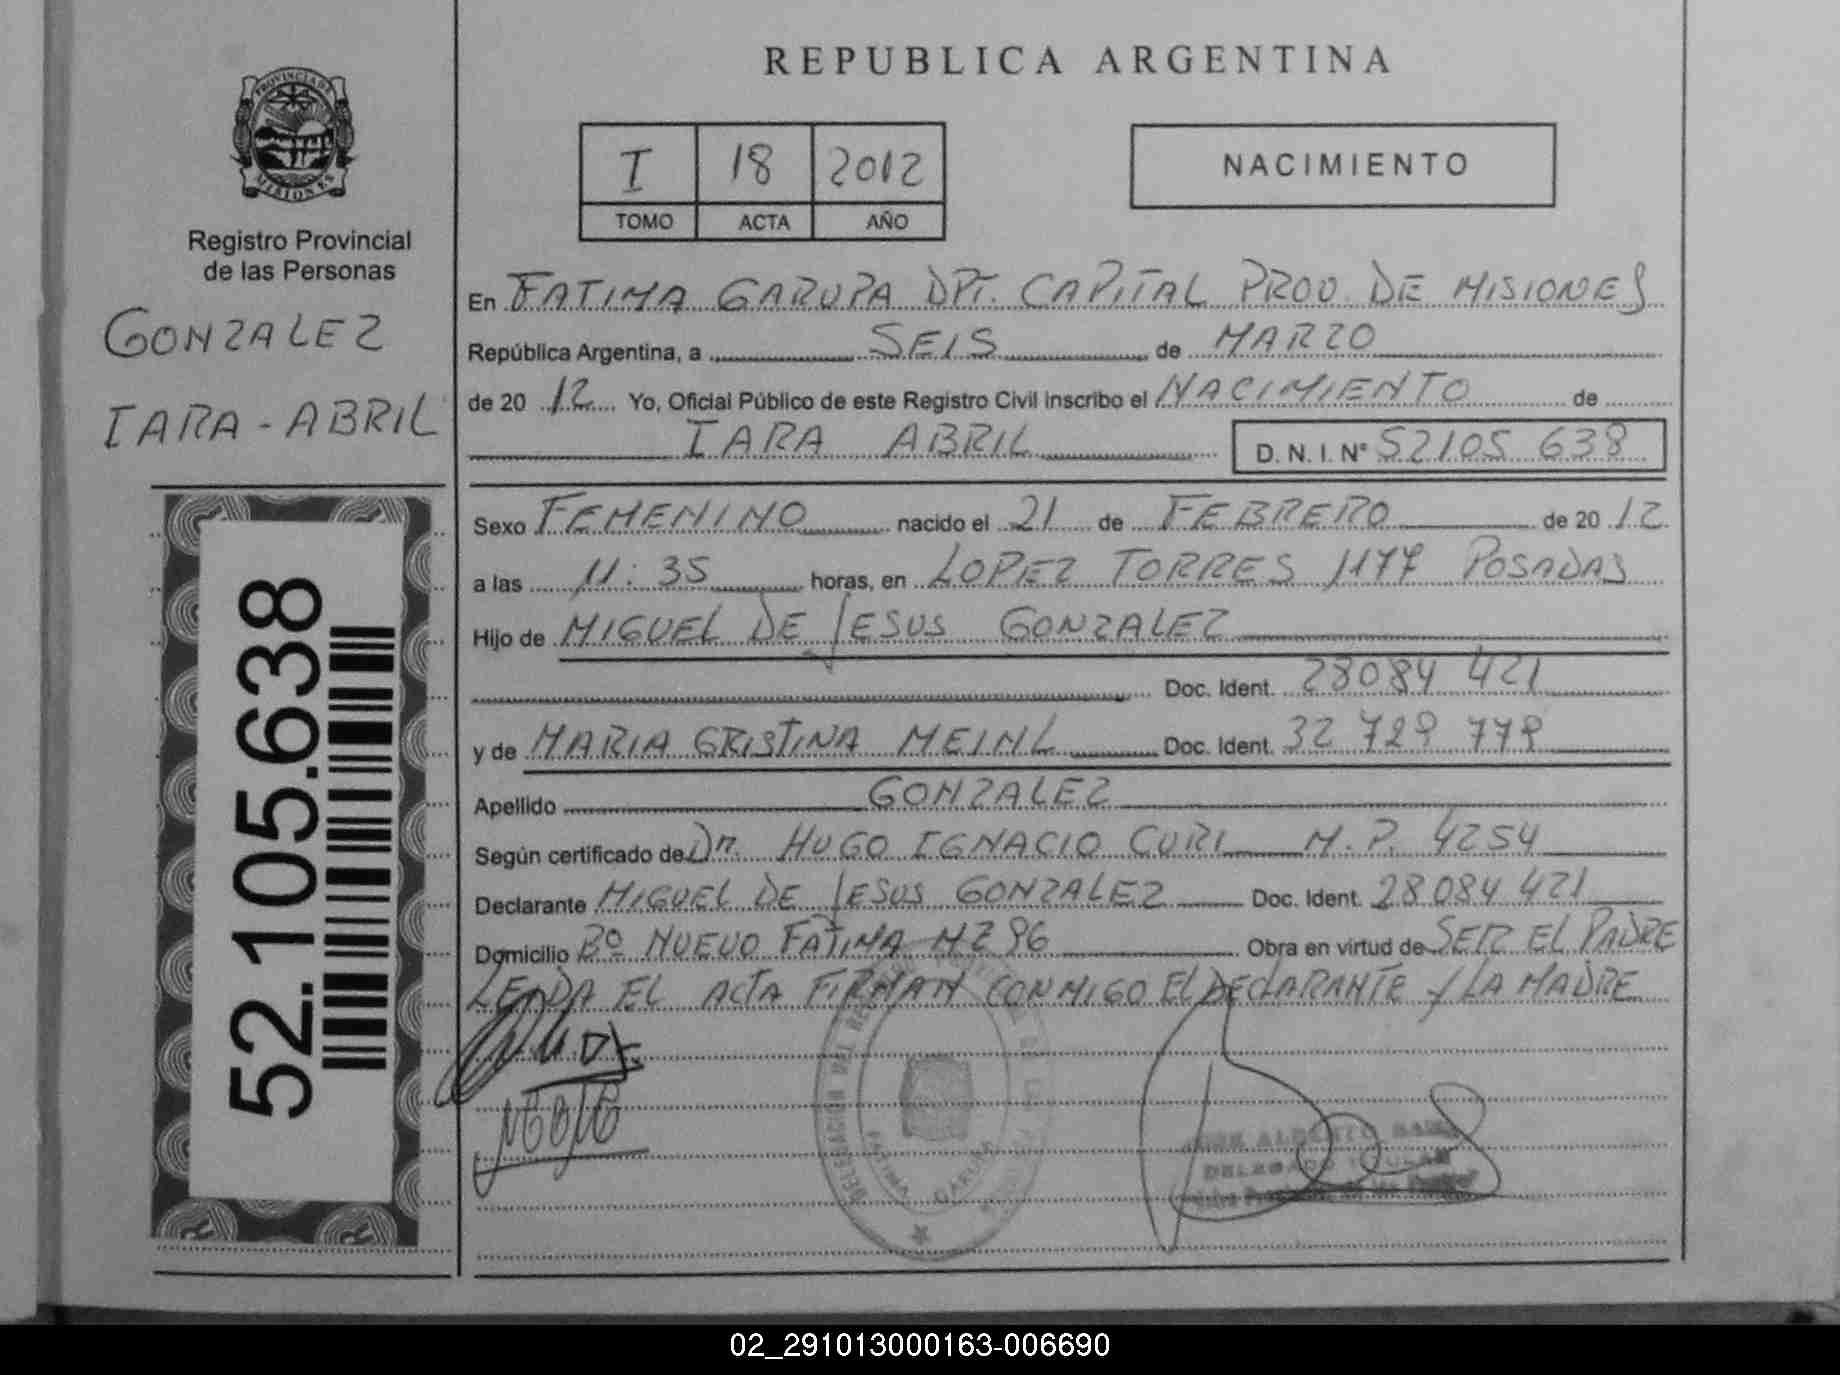 REPUBLICA ARGENTINA
PROVINCIA DE
MISIONES
Registro Provincial
de las Personas
GONZALEZ
IARA - ABRIL
52.105.638
I 18 2012
TOMO ACTA AÑO
NACIMIENTO
En FATIMA GARUPA DPT. CAPITAL PROV. DE MISIONES
República Argentina, a SEIS de MARZO
de 20 12 Yo, Oficial Público de este Registro Civil inscribo el NACIMIENTO de
IARA ABRIL D. N. I. N° 52105 638
Sexo FEMENINO nacido el 21 de FEBRERO de 20 12
a las 11:35 horas, en LOPEZ TORRES 1177 POSADAS
Hijo de MIGUEL DE JESUS GONZALEZ
Doc. Ident. 28084 421
y de MARIA CRISTINA MEINL Doc. Ident. 32 729 779
Apellido GONZALEZ
Según certificado de Dr. HUGO IGNACIO CURI M.P. 4254
Declarante MIGUEL DE JESUS GONZALEZ Doc. Ident. 28 084 421
Domicilio B° NUEVO FATIMA MZ 96 Obra en virtud de SER EL PADRE
LEIDA EL ACTA FIRMAN CONMIGO EL DECLARANTE Y LA MADRE
DELEGACION DEL
FATIMA GARUPA
ALBERTO
DELEGADO TITULAR
02_291013000163-006690